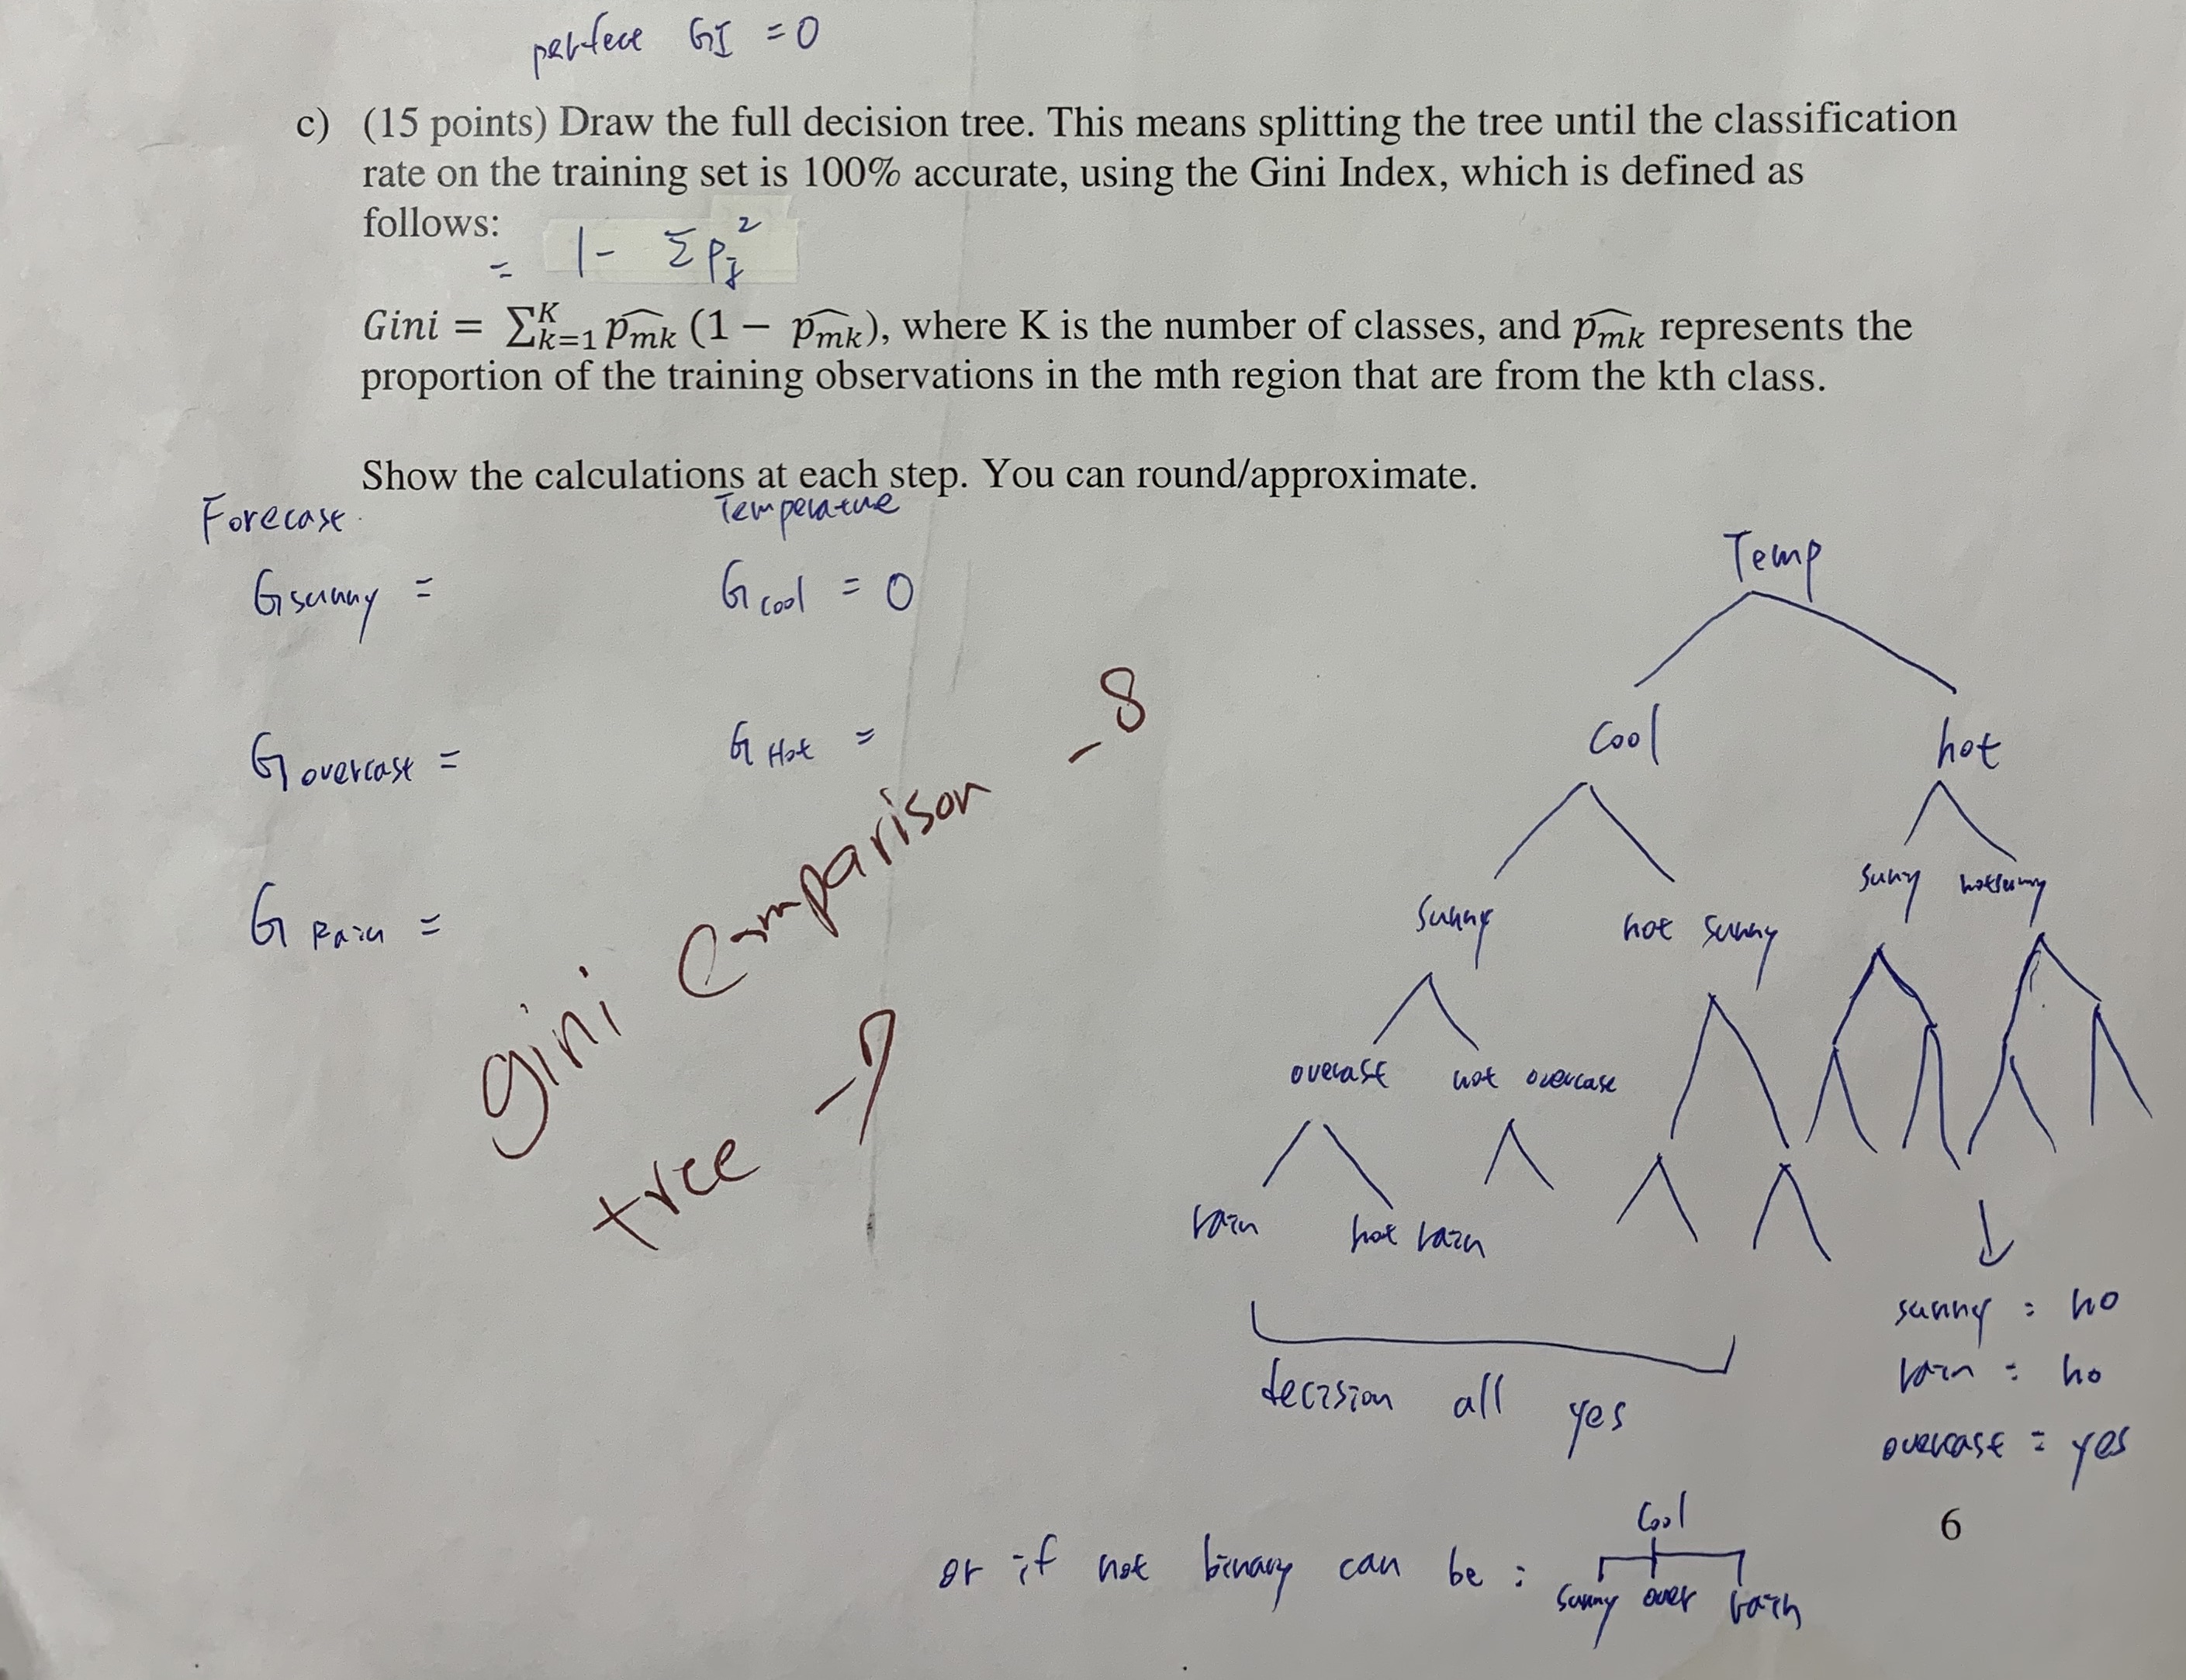 perfect GI = 0
c) (15 points) Draw the full decision tree. This means splitting the tree until the classification
rate on the training set is 100% accurate, using the Gini Index, which is defined as
follows:
= 1 - Σ Pj²
Gini = ∑ᴷₖ₌₁ p̂ₘₖ (1 − p̂ₘₖ), where K is the number of classes, and p̂ₘₖ represents the
proportion of the training observations in the mth region that are from the kth class.
Show the calculations at each step. You can round/approximate.
Forecast
Temperature
G sunny =
G cool = 0
G overcast =
G Hot =
G Rain =
gini Comparison -8
tree -7
Temp
Cool
hot
sunny
not sunny
suny
not suny
overast
not overcast
rain
not rain
decision all yes
sunny : no
rain : no
overcast : yes
or if not binary can be :
Cool
sunny over rain
6